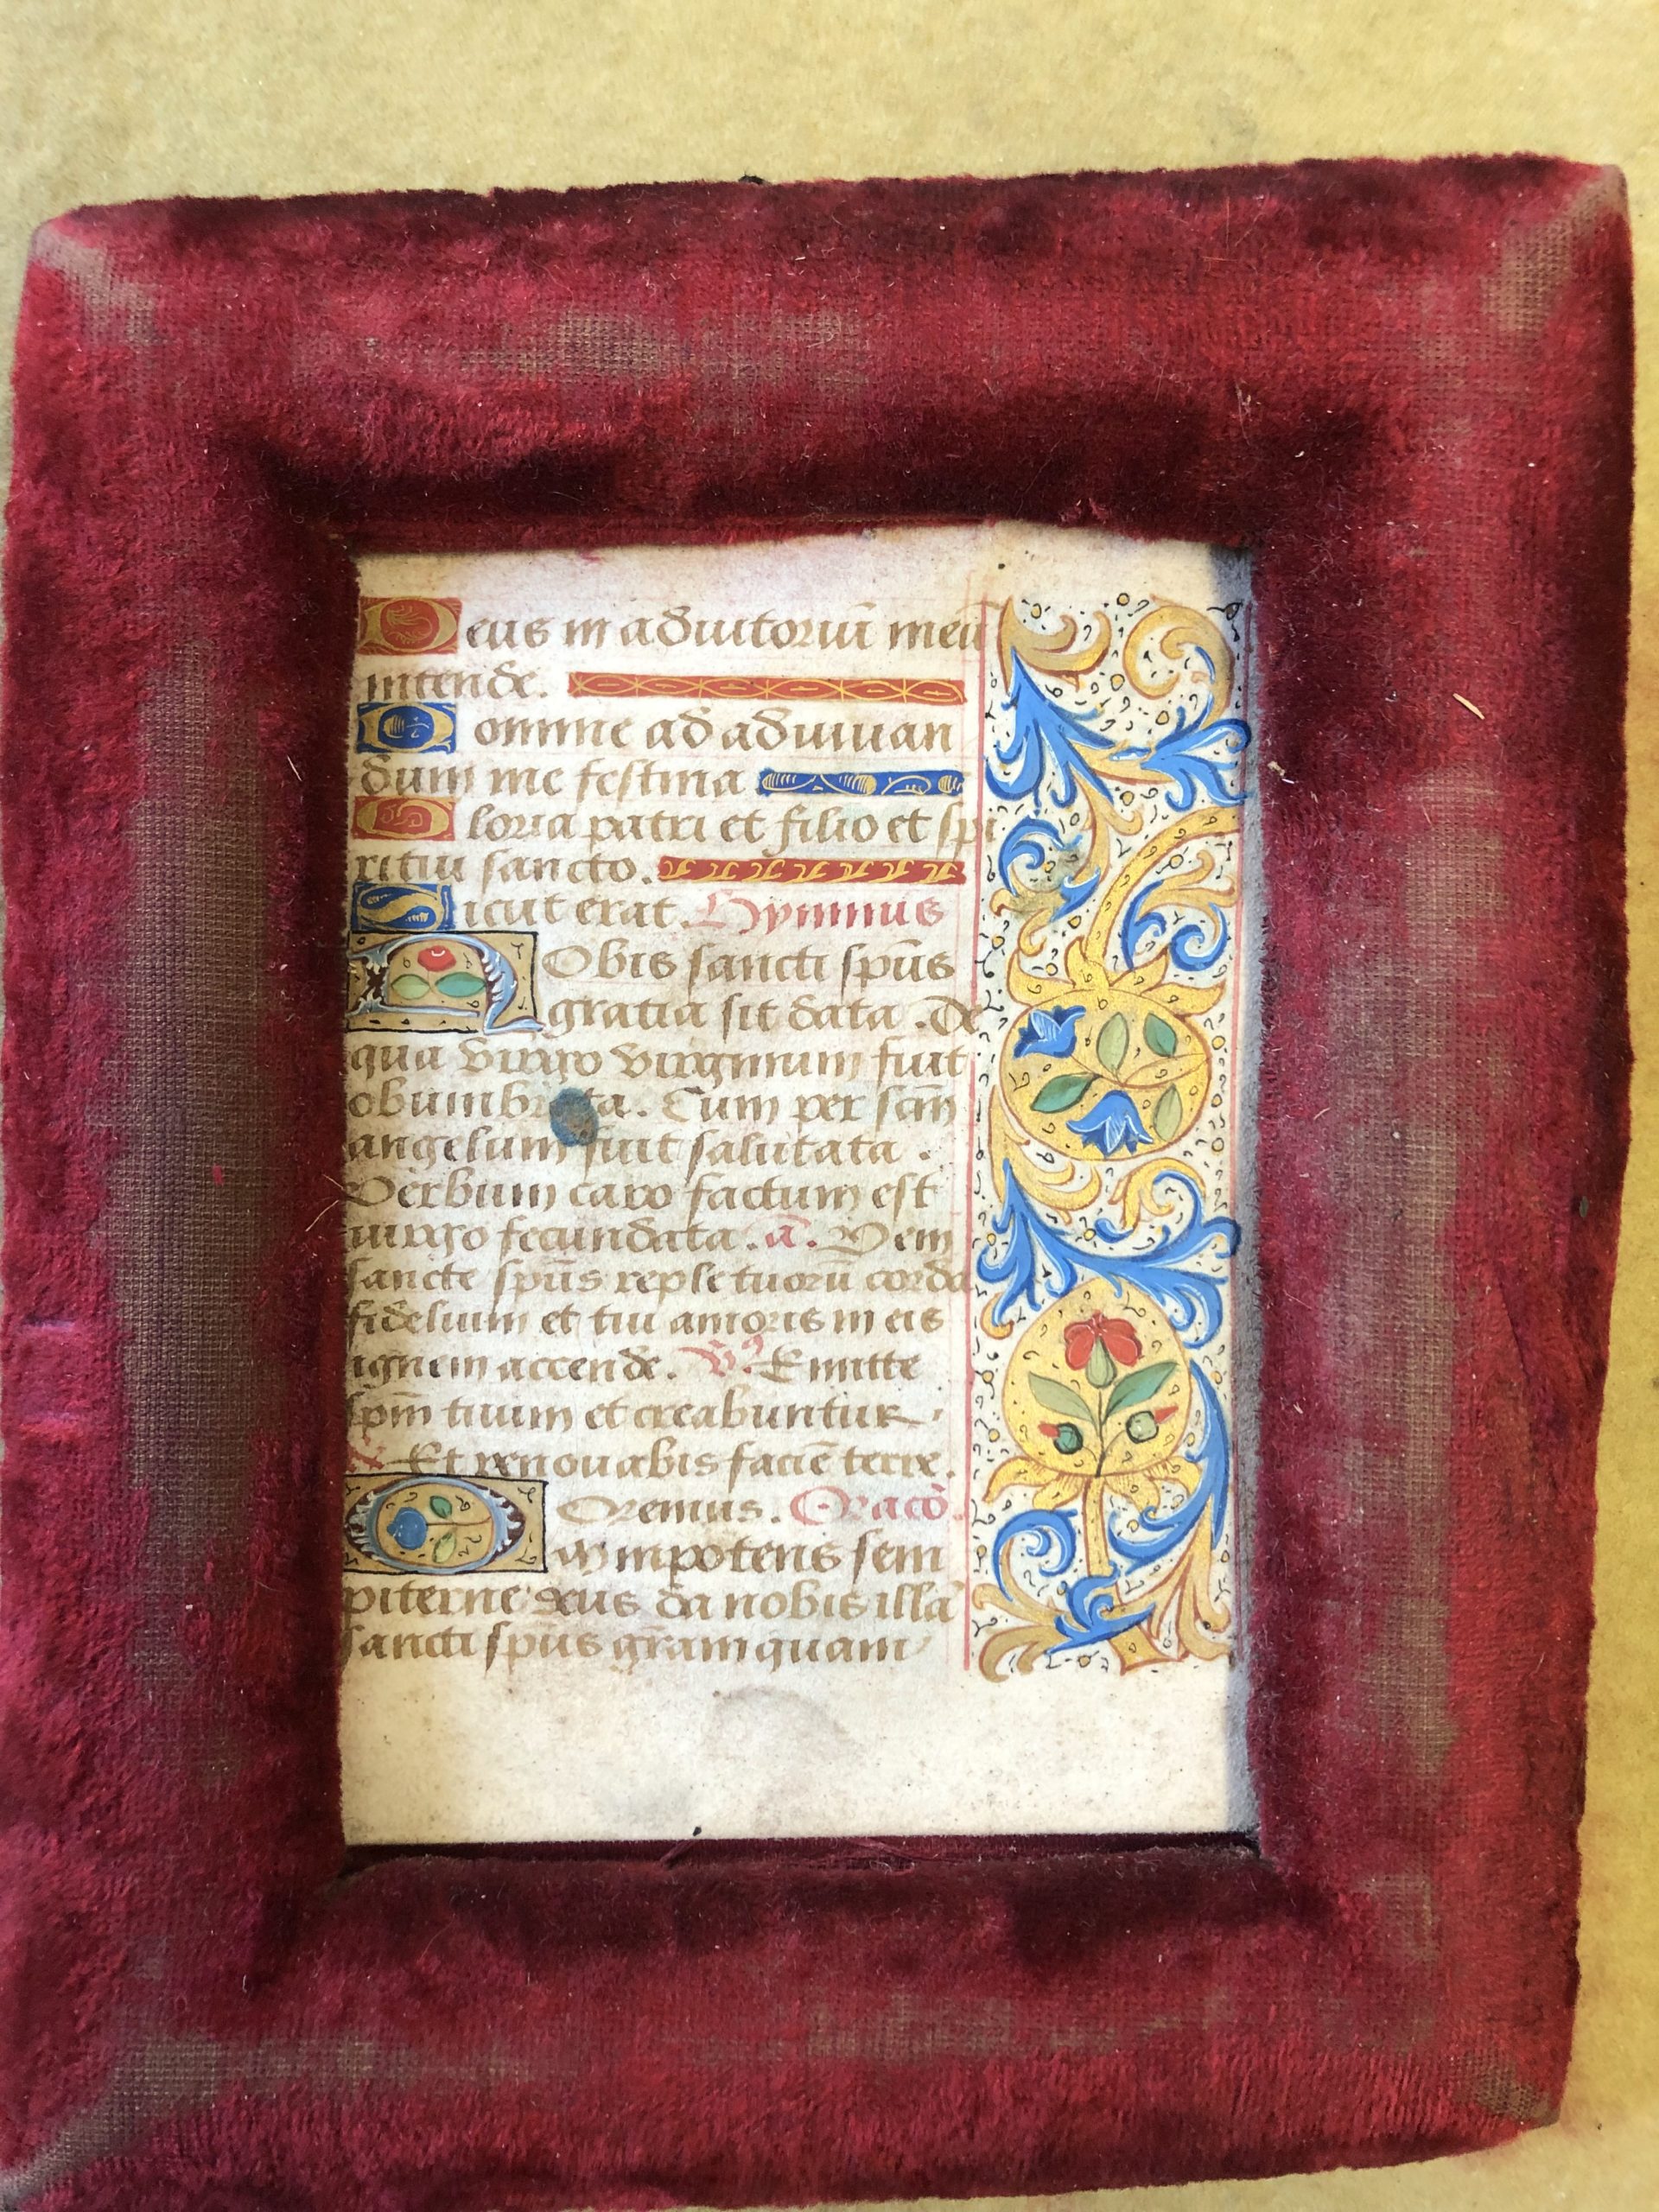 Deus in adiutoriū meū
intende.
Domine ad adiuuan
dum me festina
Gloria patri et filio et spi
ritui sancto.
Sicut erat. Hymnus
NObis sancti spūs
gratia sit data. De
qua virgo virginum fuit
obumbrata. Cum per scm̄
angelum fuit salutata.
Verbum caro factum est
uirgo fecundata. a. Veni
sancte spūs reple tuorū corda
fidelium et tui amoris in eis
ignem accende. V⁹. Emitte
spm̄ tuum et creabuntur.
Et renouabis faciē terre.
Oremus. Oracō.
Omnipotens sem
piterne deus da nobis illā
sancti spūs gr̄am quam